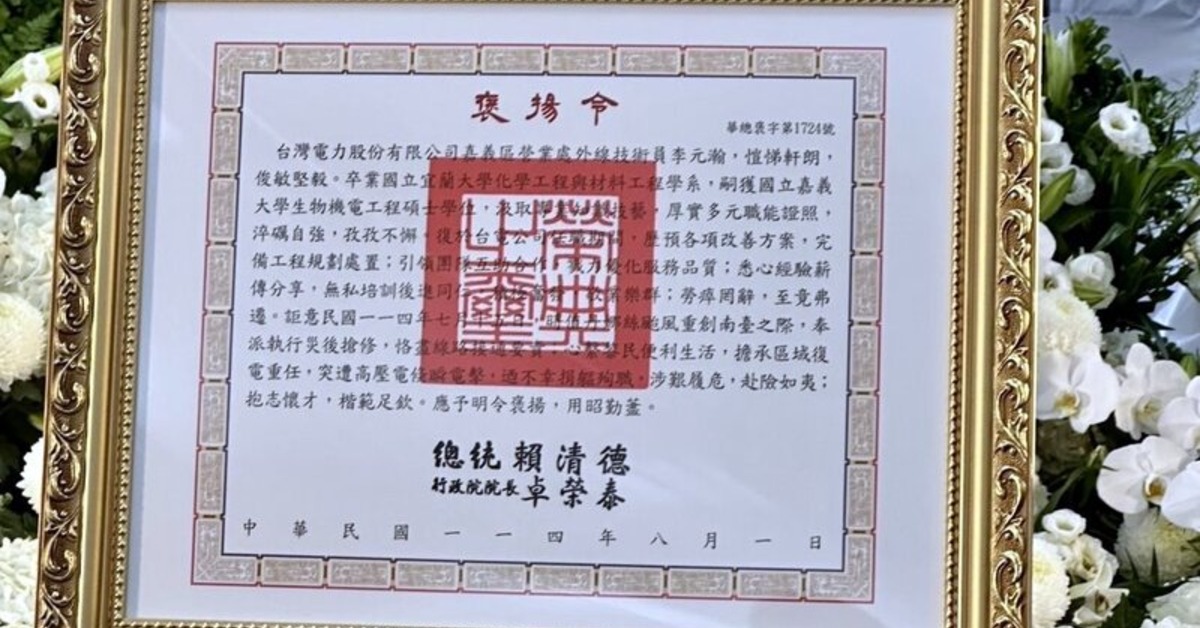 褒揚令
華總褒字第1724號
台灣電力股份有限公司嘉義區營業處外線技術員李元瀚，愷悌軒朗，
俊敏堅毅。卒業國立宜蘭大學化學工程與材料工程學系，嗣獲國立嘉義
大學生物機電工程碩士學位，汲取專業技藝，厚實多元職能證照，
淬礪自強，孜孜不懈。復於台電公司任職期間，歷預各項改善方案，完
備工程規劃處置；引領團隊互助合作，戮力優化服務品質；悉心經驗薪
傳分享，無私培訓後進同仁，奮發，敬業樂群；勞瘁罔辭，至竟弗
遷。詎意民國一一四年七月十五日，時值丹娜絲颱風重創南臺之際，奉
派執行災後搶修，恪盡線路接通要責；心繫黎民便利生活，擔承區域復
電重任，突遭高壓電侵瞬電擊，迺不幸捐軀殉職。涉艱履危，赴險如夷；
抱志懷才，楷範足欽。應予明令褒揚，用昭勤藎。
榮典之璽
總統 賴清德
行政院院長 卓榮泰
中華民國一一四年八月一日